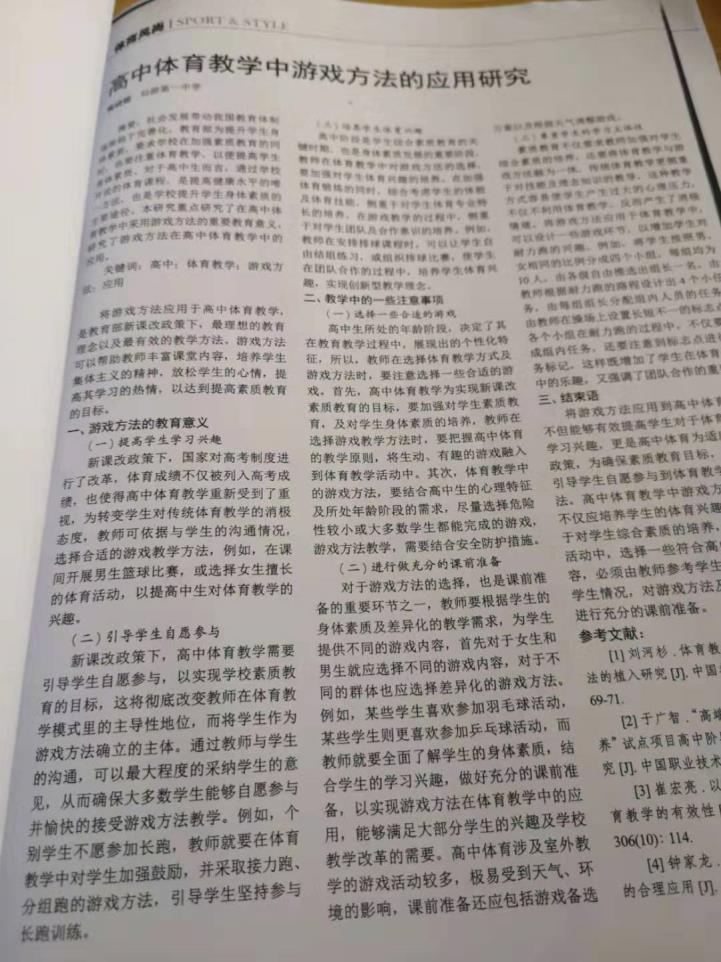 体育风尚 | SPORT & STYLE
高中体育教学中游戏方法的应用研究
仙游第一中学
摘要：社会发展带动我国教育体制
开设的体育课程，是提高健康水平的唯一
方法，也是学校提升学生身体素质的
主要途径。本研究重点研究了在高中体
育教学中采用游戏方法的重要教育意义，
研究了游戏方法在高中体育教学中的
应用。
关键词：高中；体育教学；游戏方
法；应用
将游戏方法应用于高中体育教学，
是教育部新课改政策下，最理想的教育
理念以及最有效的教学方法。游戏方法
可以帮助教师丰富课堂内容，培养学生
集体主义的精神，放松学生的心情，提
高其学习的热情，以达到提高素质教育
的目标。
一、游戏方法的教育意义
（一）提高学生学习兴趣
新课改政策下，国家对高考制度进
行了改革，体育成绩不仅被列入高考成
绩，也使得高中体育教学重新受到了重
视，为转变学生对传统体育教学的消极
态度，教师可依据与学生的沟通情况，
选择合适的游戏教学方法，例如，在课
间开展男生篮球比赛，或选择女生擅长
的体育活动，以提高中生对体育教学的
兴趣。
（二）引导学生自愿参与
新课改政策下，高中体育教学需要
引导学生自愿参与，以实现学校素质教
育的目标，这将彻底改变教师在体育教
学模式里的主导性地位，而将学生作为
游戏方法确立的主体。通过教师与学生
的沟通，可以最大程度的采纳学生的意
见，从而确保大多数学生能够自愿参与
并愉快的接受游戏方法教学。例如，个
别学生不愿参加长跑，教师就要在体育
教学中对学生加强鼓励，并采取接力跑、
分组跑的游戏方法，引导学生坚持参与
长跑训练。
（三）培养学生体育兴趣
高中阶段是学生综合素质教育的关
键时期，也是身体素质发展的重要阶段，
教师在体育教学中对游戏方法的选择，
要加强对学生体育兴趣的培养，在加强
体育锻炼的同时，综合考虑学生的体能
及体育技能，侧重于对学生体育专业特
长的培养。在游戏教学的过程中，侧重
于对学生团队及合作意识的培养。例如，
教师在安排排球课程时，可以让学生自
由结组练习，或组织排球比赛，使学生
在团队合作的过程中，培养学生体育兴
趣，实现创新型教学理念。
二、教学中的一些注意事项
（一）选择一些合适的游戏
高中生所处的年龄阶段，决定了其
在教育教学过程中，展现出的个性化特
征，所以，教师在选择体育教学方式及
游戏方法时，要注意选择一些合适的游
戏。首先，高中体育教学为实现新课改
素质教育的目标，要加强对学生素质教
育，及对学生身体素质的培养，教师在
选择游戏教学方法时，要把握高中体育
的教学原则，将生动、有趣的游戏融入
到体育教学活动中。其次，体育教学中
的游戏方法，要结合高中生的心理特征
及所处年龄阶段的需求，尽量选择危险
性较小或大多数学生都能完成的游戏，
游戏方法教学，需要结合安全防护措施。
（二）进行做充分的课前准备
对于游戏方法的选择，也是课前准
备的重要环节之一，教师要根据学生的
身体素质及差异化的教学需求，为学生
提供不同的游戏内容，首先对于女生和
男生就应选择不同的游戏内容，对于不
同的群体也应选择差异化的游戏方法。
例如，某些学生喜欢参加羽毛球活动，
某些学生则更喜欢参加乒乓球活动，而
教师就要全面了解学生的身体素质，结
合学生的学习兴趣，做好充分的课前准
备，以实现游戏方法在体育教学中的应
用，能够满足大部分学生的兴趣及学校
教学改革的需要。高中体育涉及室外教
学的游戏活动较多，极易受到天气、环
境的影响，课前准备还应包括游戏备选
方案以及根据天气调整游戏。
（三）尊重学生的学习主体性
素质教育不仅要求教师加强对学生
综合素质的培养，还要将体育教学与游
戏方法融为一体。传统体育教学更侧重
于对技能及理念知识的教导，这种教学
方式容易使学生产生过大的心理压力，
不仅不利用体育教学，反而产生了消极
情绪。将游戏方法应用于体育教学中，
可以设计一些游戏环节，以增加学生对
耐力跑的兴趣。例如，将学生按照男、
女相同的比例分成四个小组，每组均为
10 人，由各组自由推选出组长一名，由
教师根据耐力跑的路程设计出 4 个小任
务，由每组组长分配组内人员的任务
由教师在操场上设置长短不一的标志点
各个小组在耐力跑的过程中，不仅要
成组内任务，还要注意到标志点进行
务标记，这样既增加了学生在体育
中的乐趣，又强调了团队合作的重
三、结束语
将游戏方法应用到高中体
不但能够有效提高学生对于体
学习兴趣，更是高中体育为适
政策，为确保素质教育目标，
引导学生自愿参与到体育教学
法。高中体育教学中游戏方
不仅应培养学生的体育兴趣
于对学生综合素质的培养，
活动中，选择一些符合高
容，必须由教师参考学生
学生情况，对游戏方法及
进行充分的课前准备。
参考文献：
[1] 刘河杉 . 体育教
法的植入研究 [J]. 中国
69-71.
[2] 于广智 . “高
养”试点项目高中阶
究 [J]. 中国职业技术
[3] 崔宏亮 . 以
育教学的有效性
306(10)：114.
[4] 钟家龙 .
的合理应用 [J].